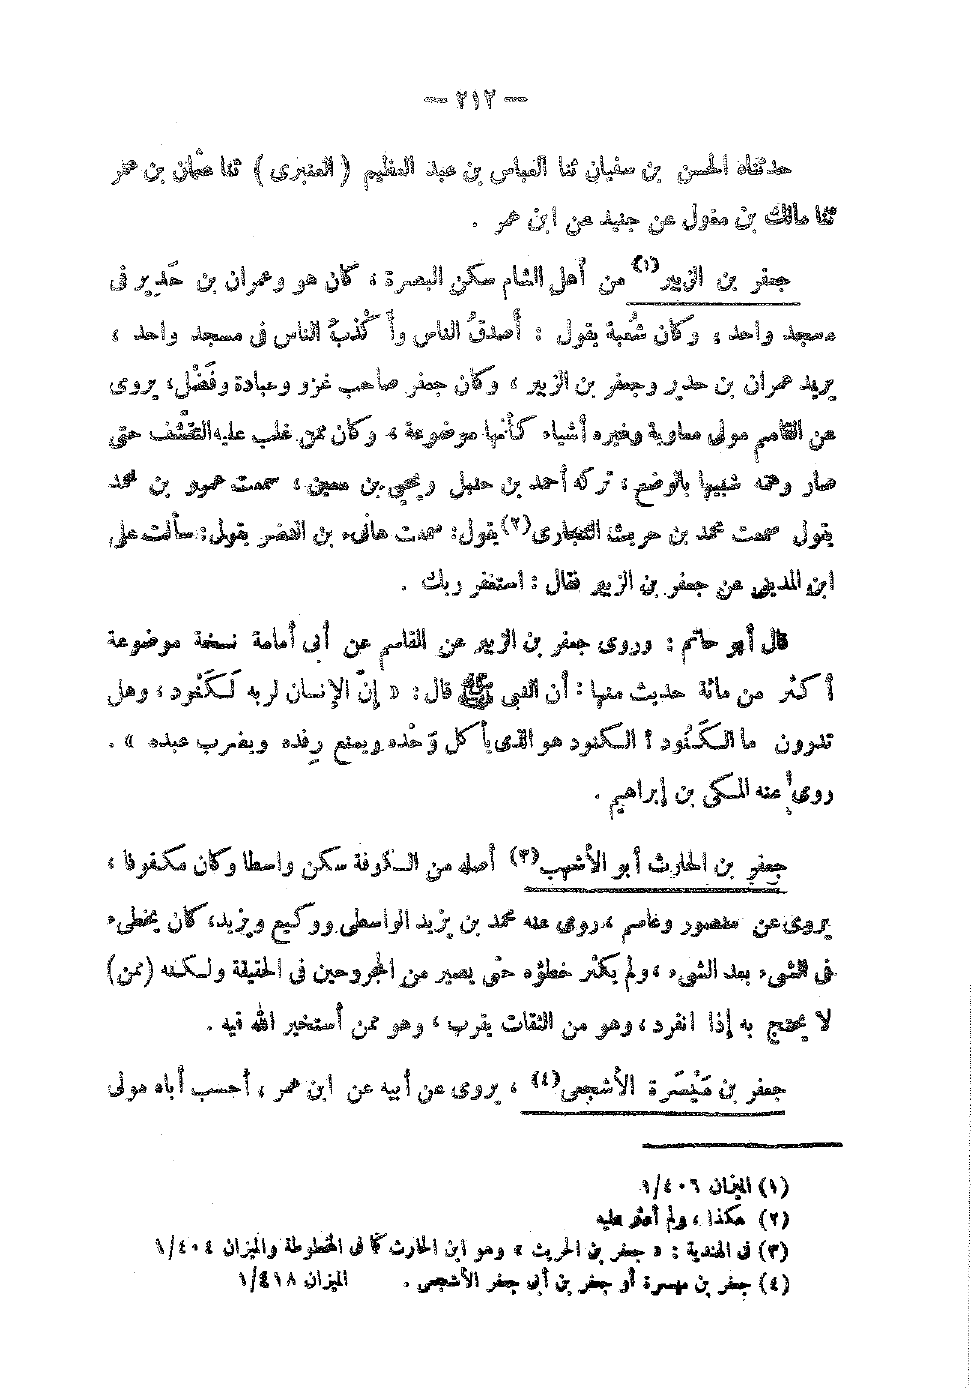 — ٢١٢ —
حدثناه الحسن بن سفيان ثنا العباس بن عبد العظيم ( العنبرى ) ثنا عثمان بن عمر
ثنا مالك بن مغول عن جنيد عن ابن عمر .
جعفر بن الزبير(١) من أهل الشام سكن البصرة ، كان هو وعمران بن حَدِير فى
مسجد واحد ، وكان شُعبة يقول : أصدقُ الناس وأكْذبُ الناس فى مسجد واحد ،
يريد عمران بن حدير وجعفر بن الزبير ، وكان جعفر صاحب غزو وعبادة وفَضْل، يروى
عن القاسم مولى معاوية وغيره أشياء كأنها موضوعة ، وكان ممن غلب عليه التقشّف حتى
صار وهمه شبيها بالوضع ، تركه أحمد بن حنبل ويحيى بن معين ، سمعت عمرو بن محمد
يقول سمعت محمد بن حريث النجارى(٢) يقول: سمعت هانىء بن النضر يقول: سألت على
ابن المدينى عن جعفر بن الزبير فقال : استغفر ربك .
قال أبو حاتم : وروى جعفر بن الزبير عن القاسم عن أبى أمامة نسخة موضوعة
أكثر من مائة حديث منها : أن النبى ﷺ قال : « إنّ الإنسان لربه لَكَنُود ، وهل
تدرون ما الكَنُود ؟ الكنود هو الذى يأكل وَحْده ويمنع رِفده ويضرب عبده » .
روى عنه المكى بن إبراهيم .
جعفر بن الحارث أبو الأشهب(٣) أصله من الكوفة سكن واسطا وكان مكفوفا ،
يروى عن منصور وعاصم ، روى عنه محمد بن يزيد الواسطى ووكيع ويزيد، كان يخطىء
فى الشىء بعد الشىء ، ولم يكثر خطؤه حتى يصير من المجروحين فى الحقيقة ولكنه (ممن)
لا يحتج به إذا انفرد ، وهو من الثقات يقرب ، وهو ممن أستخير الله فيه .
جعفر بن مَيْسَرة الأشجعى(٤) ، يروى عن أبيه عن ابن عمر ، أحسب أباه مولى
(١) الميزان ١/٤٠٦
(٢) هكذا ، ولم أعثر عليه
(٣) فى الهندية : « جعفر بن الحريث » وهو ابن الحارث كما فى المخطوطة والميزان ١/٤٠٤
(٤) جعفر بن ميسرة أو جعفر بن أبى جعفر الأشجعى . الميزان ١/٤١٨